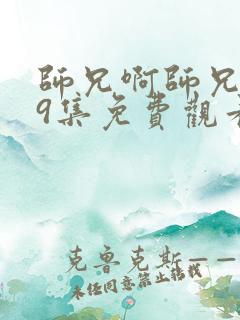 師兄啊師兄
9集免費觀看
克魯克斯——
未經同意禁止轉載